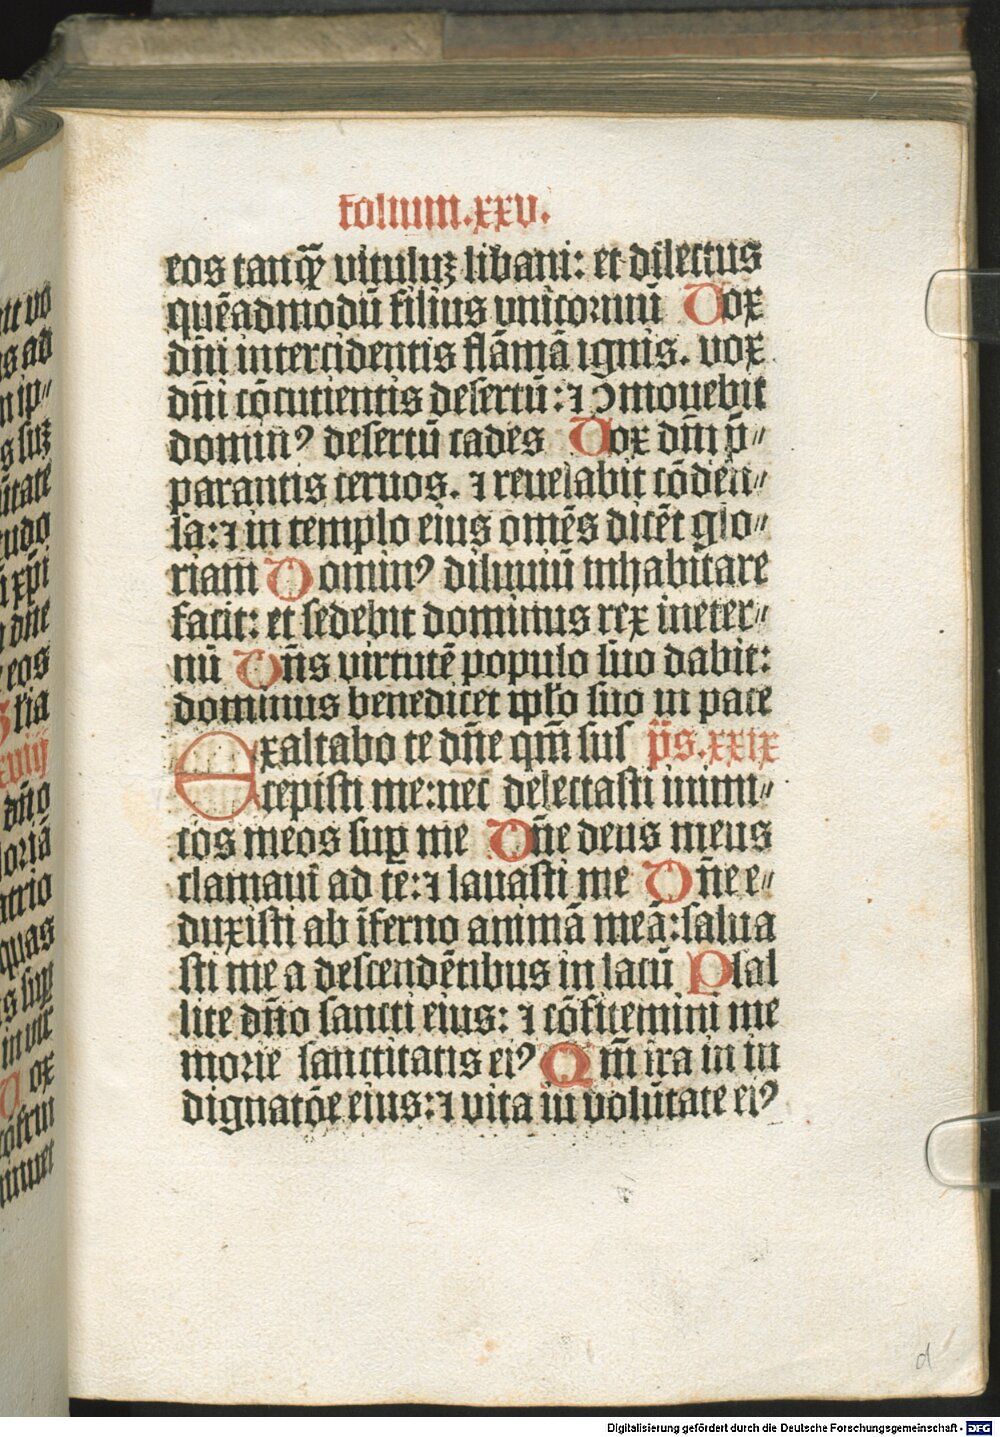 folium.xxv.
eos tanqȝ vituluȝ libani: et dilectus
quēadmodū filius vnicornuū Vox
dñi intercidentis flāmā ignis. vox
dñi cōcutientis desertū: ⁊ ↄmouebit
domin⁹ desertū cades Vox dñi p̄⸗
parantis ceruos. ⁊ reuelabit cōden⸗
sa: ⁊ in templo eius omēs dicēt glo⸗
riam Domin⁹ diluuiū inhabitare
facit: et sedebit dominus rex ineter⸗
nū Dñs virtutē populo suo dabit:
dominus benedicet ipło suo in pace
Exaltabo te dñe qm̄ sus p̄s.xxix
cepisti me: nec delectasti inimi⸗
cos meos suꝑ me Dñe deus meus
clamaui ad te: ⁊ sanasti me Dñe e⸗
duxisti ab īferno animā meā: salua
sti me a descendētibus in lacū Psal
lite dño sancti eius: ⁊ cōfitemini me
morie sanctitatis ei⁹ Qm̄ ira in in
dignatōe eius: ⁊ vita in volūtate ei⁹
d
Digitalisierung gefördert durch die Deutsche Forschungsgemeinschaft - DFG